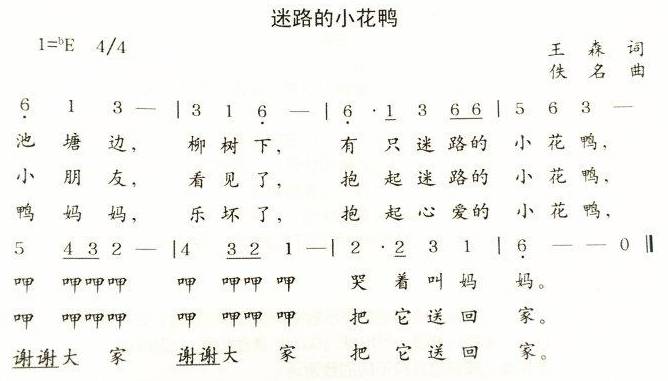 迷路的小花鸭
1=ᵇE 4/4
王森词
佚名曲
6̣ 1 3 — | 3 1 6̣ — | 6̣ · 1 3 6 6 | 5 6 3 —
池塘边， 柳树下， 有只迷路的小花鸭，
小朋友， 看见了， 抱起迷路的小花鸭，
鸭妈妈， 乐坏了， 抱起心爱的小花鸭，
5 4 3 2 — | 4 3 2 1 — | 2 · 2 3 1 | 6̣ — — 0 ‖
呷 呷呷呷 呷 呷呷呷 哭着叫妈妈。
呷 呷呷呷 呷 呷呷呷 把它送回家。
谢谢大家 谢谢大家 把它送回家。